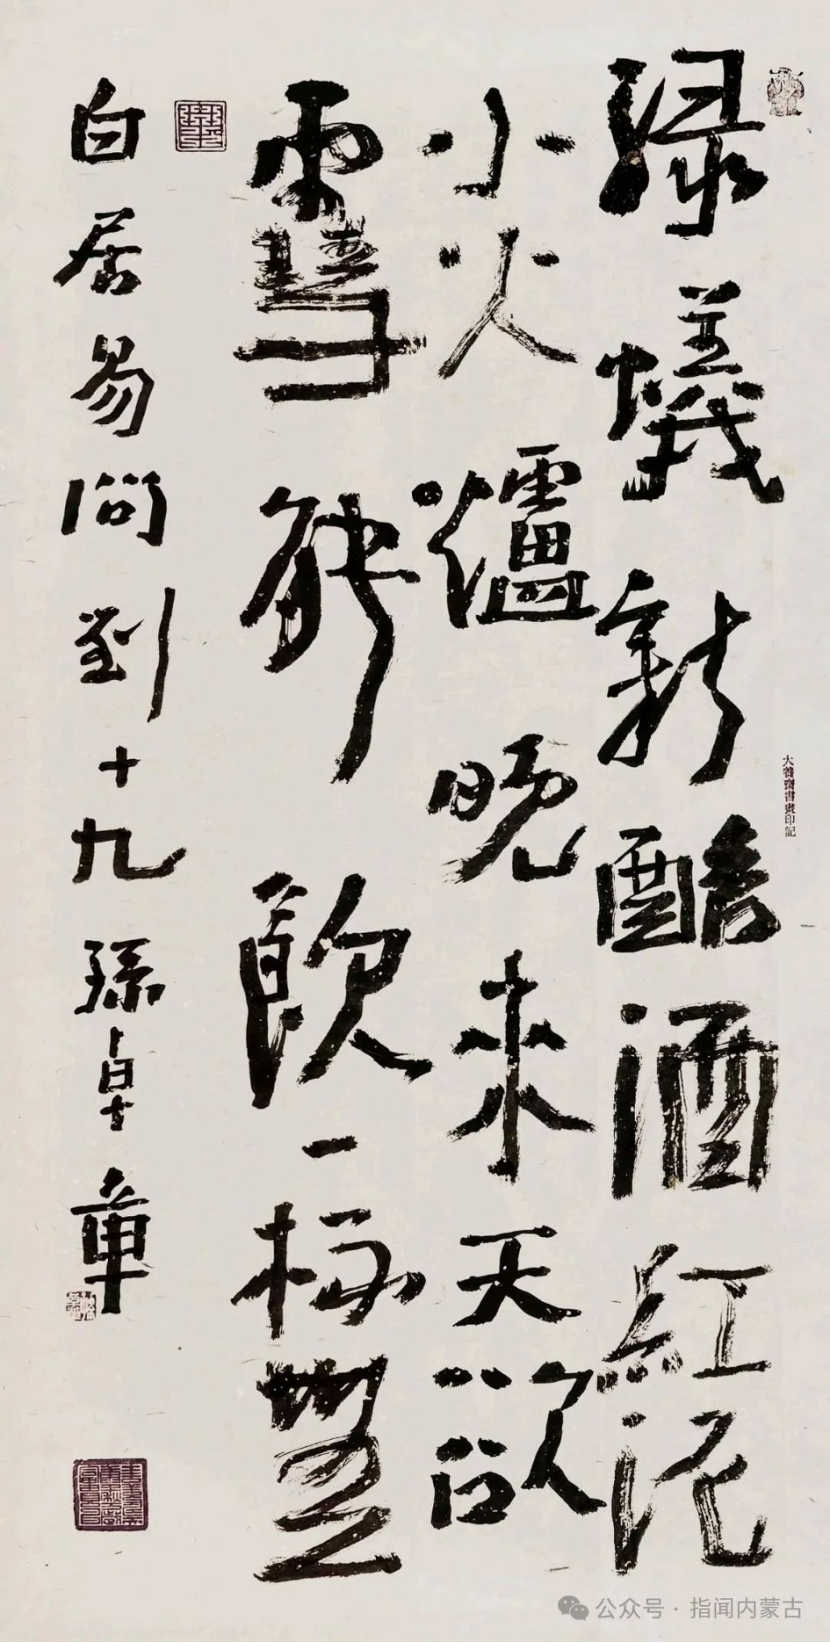 绿蟻新醅酒紅泥
小火爐晚來天欲
雪能飲一杯無
白居易問劉十九孫卓章
書畫印記
公众号 · 指闻内蒙古